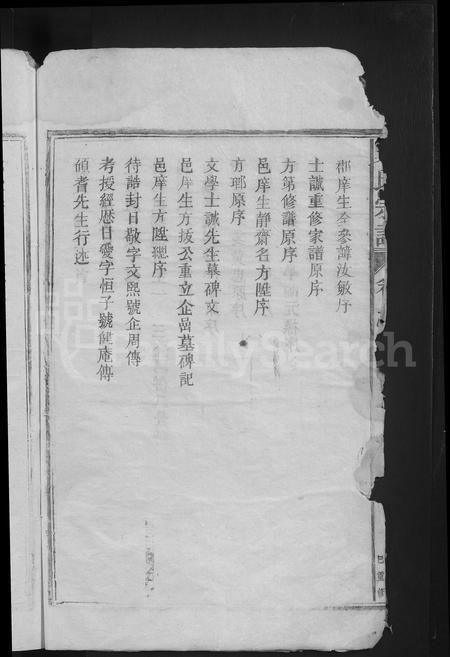 郡庠生公參諱汝敏序
士讖重修家譜原序
方第修譜原序
邑庠生靜齋名方陞序
方瑯原序
文學士誠先生墓碑文序
邑庠生方拔公重立企嵒墓碑記
邑庠生方陞總序
待誥封日敬字文熙號企周傳
考授經歷日愛字恒子號健庵傳
傾耆先生行述
氏宗譜
FamilySearch